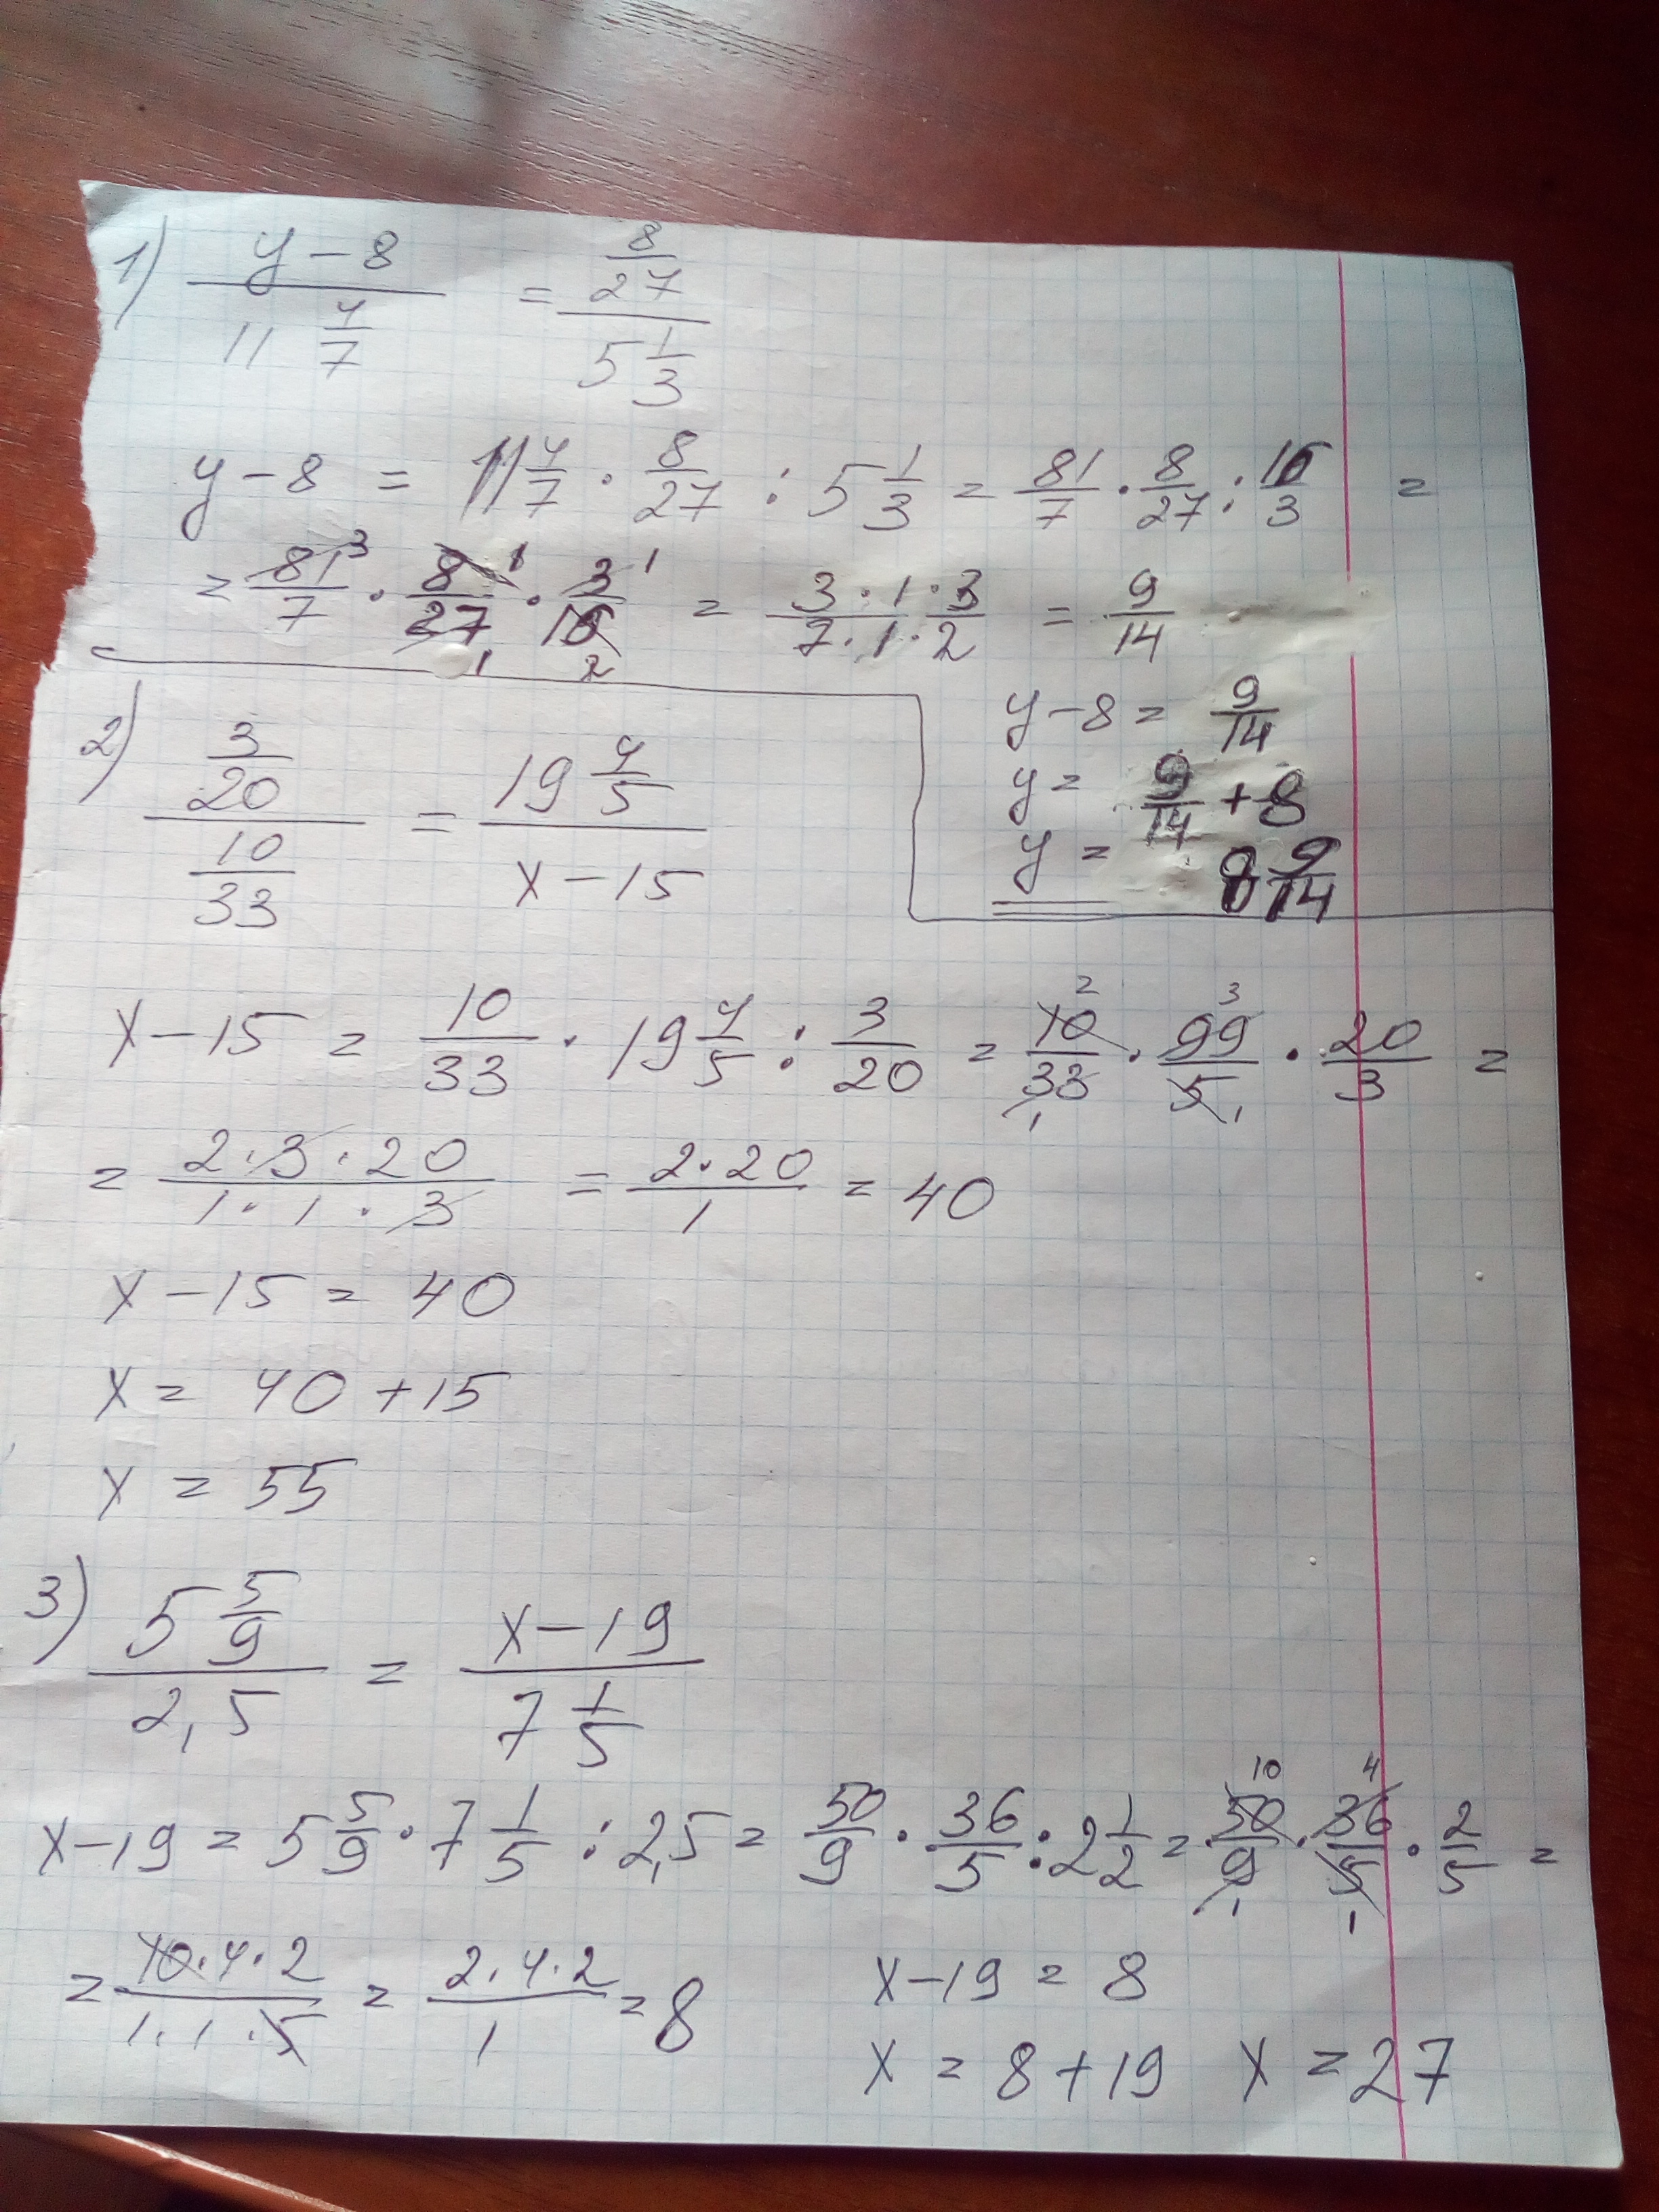 1) (y-8)/(11 4/7) = (8/27)/(5 1/3)
y-8 = 11 4/7 · 8/27 : 5 1/3 = 81/7 · 8/27 : 16/3 =
= 81/7 · 8/27 · 3/16 = (3·1·3)/(7·1·2) = 9/14
3 1 1
1 2
y-8 = 9/14
y = 9/14 + 8
y = 8 9/14
2) (3/20)/(10/33) = (19 4/5)/(x-15)
x-15 = 10/33 · 19 4/5 : 3/20 = 10/33 · 99/5 · 20/3 =
2 3
1 1
= (2·3·20)/(1·1·3) = (2·20)/1 = 40
x-15 = 40
x = 40+15
x = 55
3) (5 5/9)/(2,5) = (x-19)/(7 1/5)
x-19 = 5 5/9 · 7 1/5 : 2,5 = 50/9 · 36/5 : 2 1/2 = 50/9 · 36/5 · 2/5 =
10 4
1 1
= (10·4·2)/(1·1·5) = (2·4·2)/1 = 8
x-19 = 8
x = 8+19 x = 27